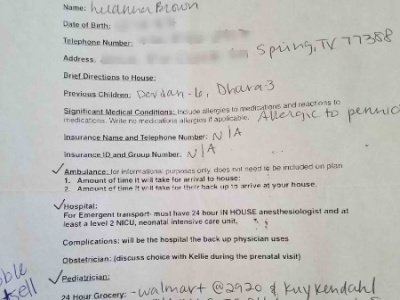 Name: Brown
Date of Birth:
Telephone Number:
Spring, TX 77388
Address:
Brief Directions to House:
Previous Children: Devdan-6, Dhara 3
Significant Medical Conditions: Include allergies to medications and reactions to
medications. Write no medications allergies if applicable. Allergic to
Insurance Name and Telephone Number: N/A
Insurance ID and Group Number: N/A
✓Ambulance: for informational purposes only, does not need to be included on plan
1. Amount of time it will take for arrival to house:
2. Amount of time it will take for their back up to arrive at your house.
✓Hospital:
For Emergent transport- must have 24 hour IN HOUSE anesthesiologist and at
least a level 2 NICU, neonatal intensive care unit.
Complications: will be the hospital the back up physician uses
Obstetrician: (discuss choice with Kellie during the prenatal visit)
✓Pediatrician:
24 Hour Grocery: -walmart @ 2920 & Kuykendahl